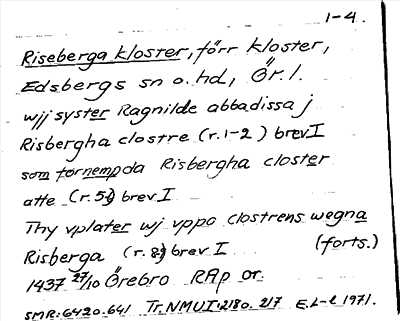 1-4.
Riseberga kloster, förr kloster,
Edsbergs sn o. hd, Ör. l.
wjj syster Ragnilde abbadissa j
Risbergha clostre (r. 1-2) brev I
som fornempda Risbergha closter
atte (r. 5) brev I
Thy vplater wj vppo clostrens wegna
Risberga (r. 8) brev I (forts.)
1437 27/10 Örebro RAp or.
SMR. 6420. 641 Tr. NMU I: 2180. 217 E. L-l 1971.